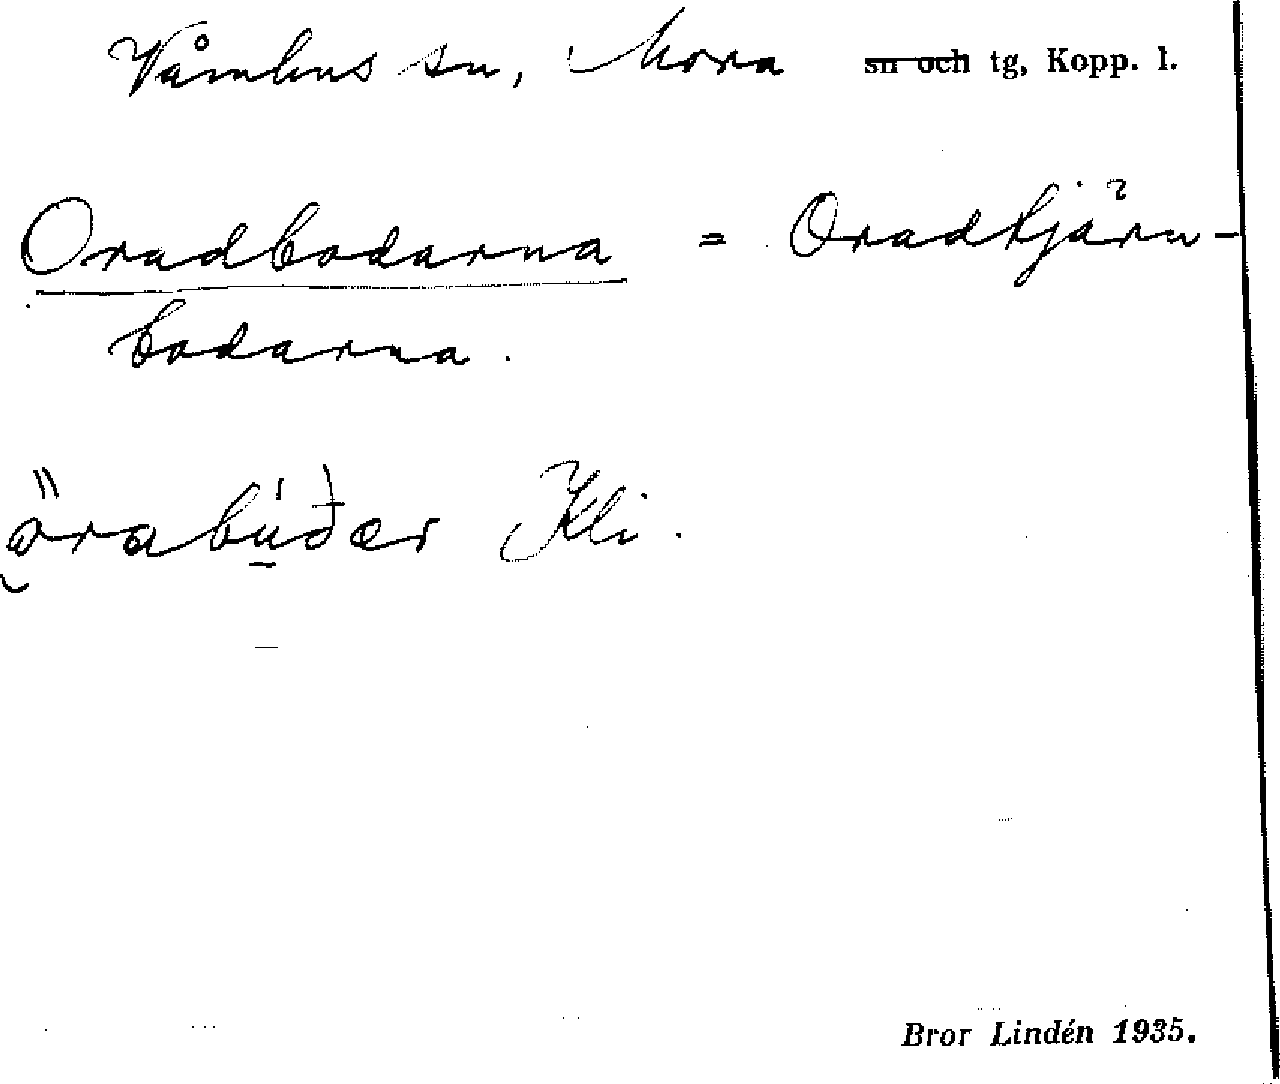 Våmhus sn, Mora ~~sn och~~ tg, Kopp. l.
Oradbodarna = Oradtjärn-
bodarna.
örabúðær Kli.
Bror Lindén 1935.